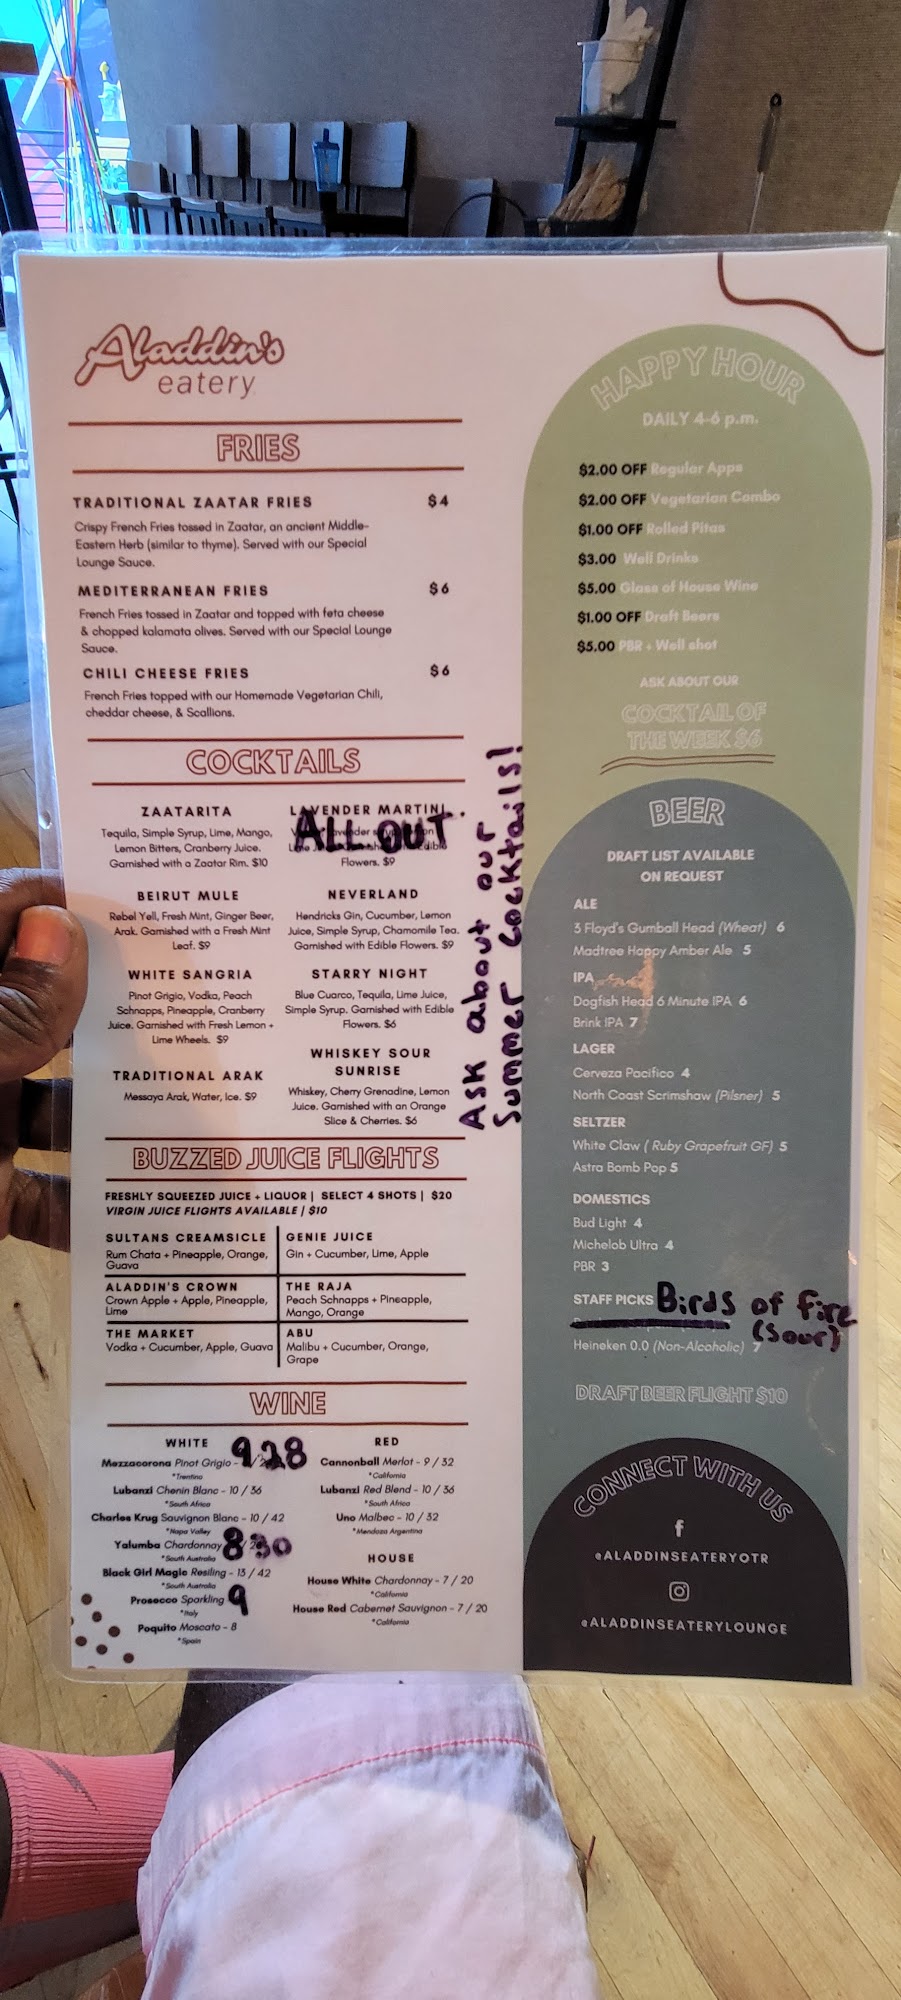 Aladdin's
eatery
FRIES
TRADITIONAL ZAATAR FRIES $4
Crispy French Fries tossed in Zaatar, an ancient Middle-
Eastern Herb (similar to thyme). Served with our Special
Lounge Sauce.
MEDITERRANEAN FRIES $6
French Fries tossed in Zaatar and topped with feta cheese
& chopped kalamata olives. Served with our Special Lounge
Sauce.
CHILI CHEESE FRIES $6
French Fries topped with our Homemade Vegetarian Chili,
cheddar cheese, & Scallions.
COCKTAILS
ZAATARITA
Tequila, Simple Syrup, Lime, Mango,
Lemon Bitters, Cranberry Juice.
Garnished with a Zaatar Rim. $10
BEIRUT MULE
Rebel Yell, Fresh Mint, Ginger Beer,
Arak. Garnished with a Fresh Mint
Leaf. $9
WHITE SANGRIA
Pinot Grigio, Vodka, Peach
Schnapps, Pineapple, Cranberry
Juice. Garnished with Fresh Lemon +
Lime Wheels. $9
TRADITIONAL ARAK
Messaya Arak, Water, Ice. $9
LAVENDER MARTINI
ALL OUT
Flowers. $9
NEVERLAND
Hendricks Gin, Cucumber, Lemon
Juice, Simple Syrup, Chamomile Tea.
Garnished with Edible Flowers. $9
STARRY NIGHT
Blue Cuarco, Tequila, Lime Juice,
Simple Syrup. Garnished with Edible
Flowers. $6
WHISKEY SOUR
SUNRISE
Whiskey, Cherry Grenadine, Lemon
Juice. Garnished with an Orange
Slice & Cherries. $6
Ask about our
Summer cocktails!
BUZZED JUICE FLIGHTS
FRESHLY SQUEEZED JUICE + LIQUOR | SELECT 4 SHOTS | $20
VIRGIN JUICE FLIGHTS AVAILABLE | $10
SULTANS CREAMSICLE
Rum Chata + Pineapple, Orange,
Guava
GENIE JUICE
Gin + Cucumber, Lime, Apple
ALADDIN'S CROWN
Crown Apple + Apple, Pineapple,
Lime
THE RAJA
Peach Schnapps + Pineapple,
Mango, Orange
THE MARKET
Vodka + Cucumber, Apple, Guava
ABU
Malibu + Cucumber, Orange,
Grape
WINE
WHITE
Mezzacorona Pinot Grigio - 9 28
*Trentino
Lubanzi Chenin Blanc - 10 / 36
*South Africa
Charles Krug Sauvignon Blanc - 10 / 42
*Napa Valley
Yalumba Chardonnay 8 30
*South Australia
Black Girl Magic Resiling - 13 / 42
*South Australia
Prosecco Sparkling 9
*Italy
Poquito Moscato - 8
*Spain
RED
Cannonball Merlot - 9 / 32
*California
Lubanzi Red Blend - 10 / 36
*South Africa
Uno Malbec - 10 / 32
*Mendoza Argentina
HOUSE
House White Chardonnay - 7 / 20
*California
House Red Cabernet Sauvignon - 7 / 20
*California
HAPPY HOUR
DAILY 4-6 p.m.
$2.00 OFF Regular Apps
$2.00 OFF Vegetarian Combo
$1.00 OFF Rolled Pitas
$3.00 Well Drinks
$5.00 Glass of House Wine
$1.00 OFF Draft Beers
$5.00 PBR + Well shot
ASK ABOUT OUR
COCKTAIL OF
THE WEEK $6
BEER
DRAFT LIST AVAILABLE
ON REQUEST
ALE
3 Floyd's Gumball Head (Wheat) 6
Madtree Happy Amber Ale 5
IPA
Dogfish Head 6 Minute IPA 6
Brink IPA 7
LAGER
Cerveza Pacifico 4
North Coast Scrimshaw (Pilsner) 5
SELTZER
White Claw ( Ruby Grapefruit GF) 5
Astra Bomb Pop 5
DOMESTICS
Bud Light 4
Michelob Ultra 4
PBR 3
STAFF PICKS Birds of fire
(sour)
Heineken 0.0 (Non-Alcoholic) 7
DRAFT BEER FLIGHT $10
CONNECT WITH US
@ALADDINSEATERYOTR
@ALADDINSEATERYLOUNGE